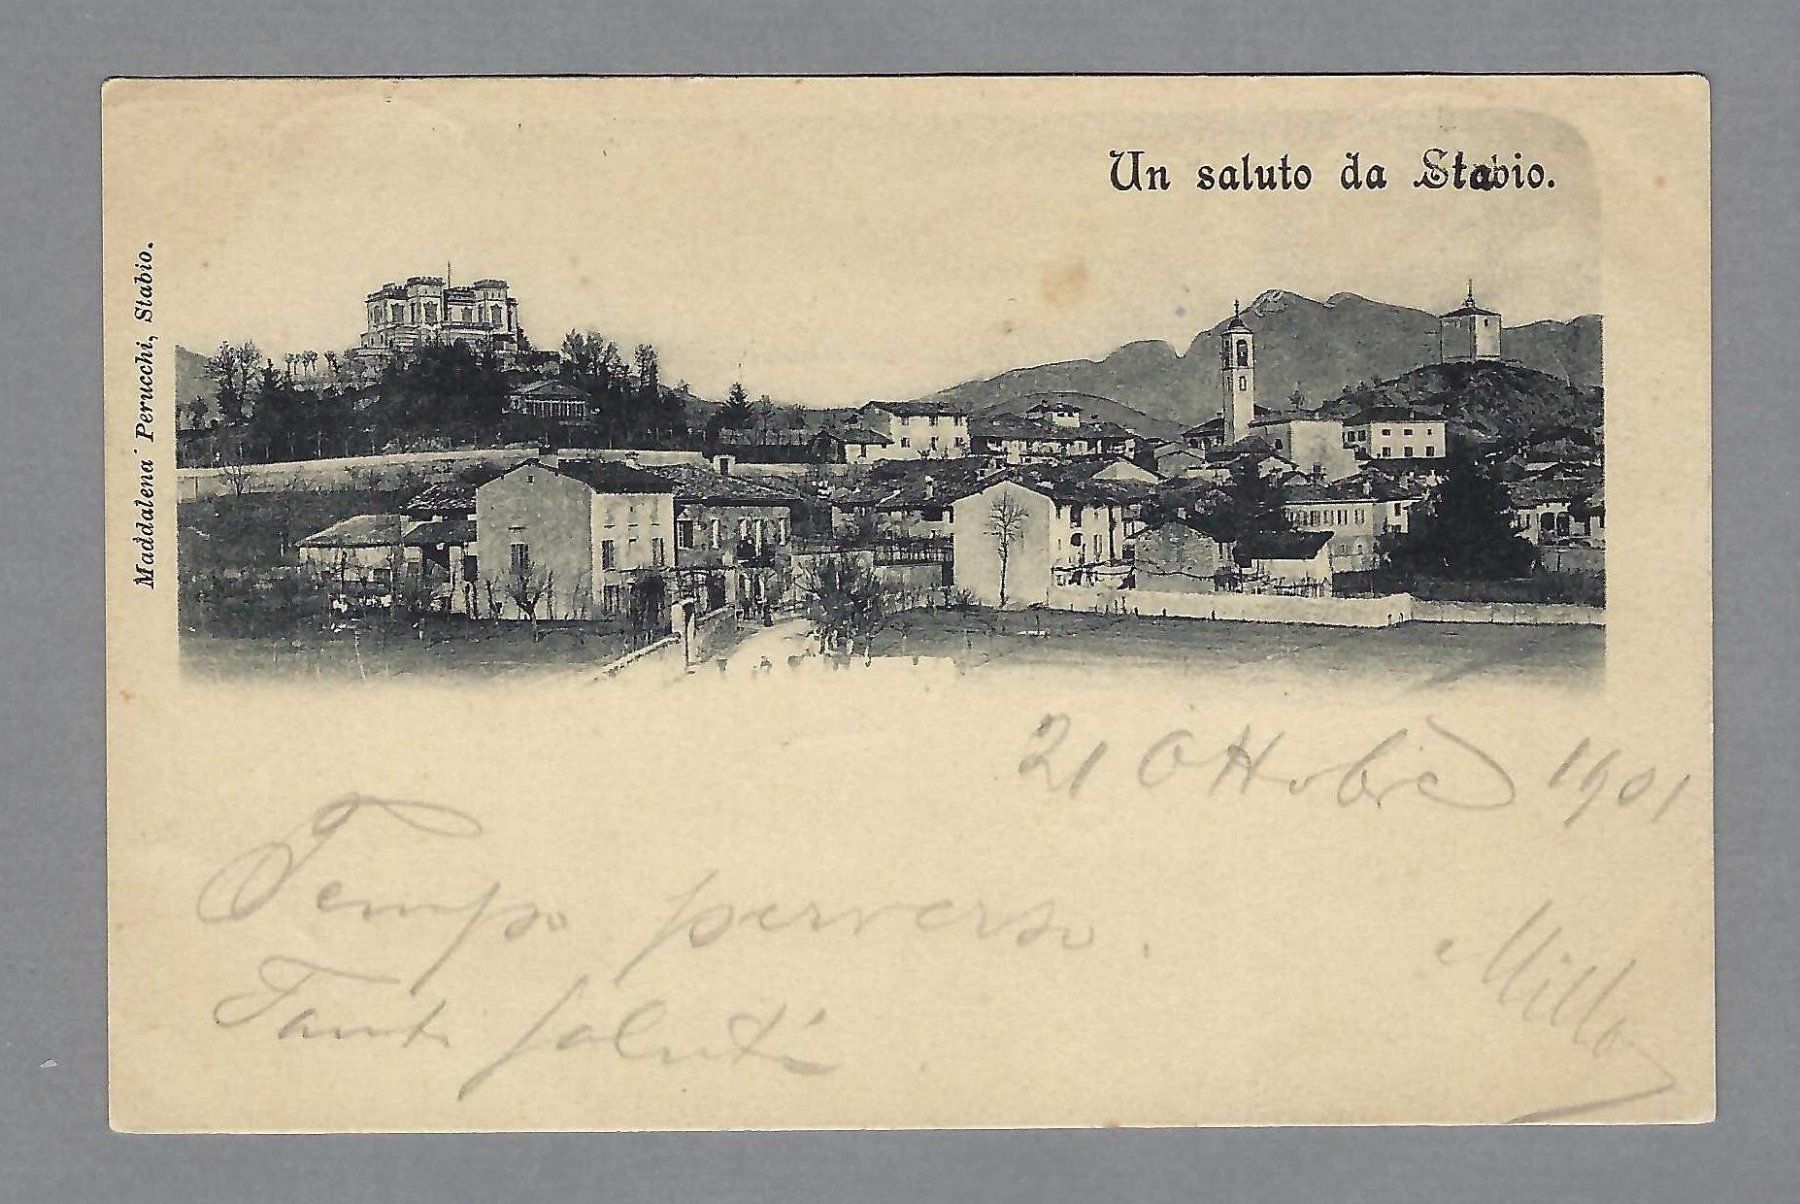 Un saluto da Stabio.
Maddalena Perucchi, Stabio.
21 Ottobre 1901
Tempo perverso.
Tanti saluti
Millo